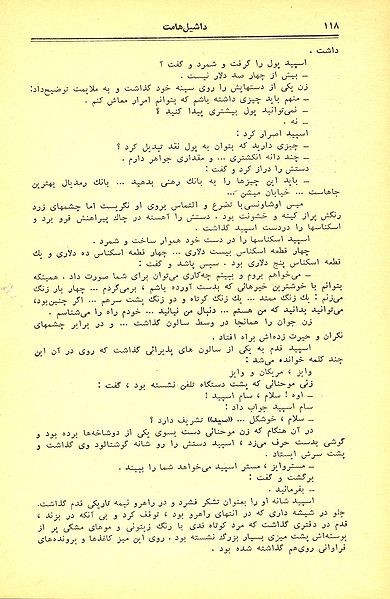 ۱۱۸
داشیل‌هامت
داشت .
اسپید پول را گرفت و شمرد و گفت ؟
ـ بیش از چهار صد دلار نیست .
زن یکی از دستهایش را روی سینه خود گذاشت و به ملایمت توضیح‌داد:
ـ منهم باید چیزی داشته باشم که بتوانم امرار معاش کنم .
ـ نمی‌توانید پول بیشتری پیدا کنید ؟
ـ نه .
اسپید اصرار کرد :
ـ چیزی دارید که بتوان به پول نقد تبدیل کرد ؟
ـ چند دانه انگشتری ... و مقداری جواهر دارم .
دستش را دراز کرد و گفت :
ـ باید این چیزها را به بانك رهنی بدهید ... بانك رمدیال بهترین
جاهاست ... خیابان میشن ...
میس اوشاونسی‌با تضرع و التماس بروی او نگریست اما چشمهای زرد
رنگش پراز کینه و خشونت بود . دستش را آهسته در چاك پیراهنش فرو برد و
اسکناسها را دردست اسپید گذاشت .
اسپید اسکناسها را در دست خود هموار ساخت و شمرد .
چهار قطعه اسکناس بیست دلاری ... چهار قطعه اسکناس ده دلاری و یك
قطعه اسکناس پنج دلاری بود . سپس باشد و گفت :
ـ می‌خواهم بروم و ببینم چه‌کاری می‌توان برای شما صورت داد . همینکه
بتوانم با خوشترین خبرهائی که بدست آورده باشم ، برمی‌گردم ... چهار بار زنگ
می‌زنم : یك زنگ ممتد ... یك زنگ کوتاه و دو زنگ پشت سرهم ... اگر چنین‌بود،
می‌توانید بدانید که من هستم ... دنبال من نیائید ... خودم راه را می‌شناسم .
زن جوان را همانجا در وسط سالون گذاشت ... و در برابر چشمهای
نگران و حیرت زده‌اش براه افتاد .
اسپید قدم به یکی از سالون های پذیرائی گذاشت که روی در آن این
چند کلمه خوانده می‌شد :
وایز ، مریکان و وایز
زنی موحنائی که پشت دستگاه تلفن نشسته بود ، گفت :
ـ اوه ! سلام ، سام اسپید !
سام اسپید جواب داد :
ـ سلام ، خوشگل ... «سید» تشریف دارد ؟
در آن هنگام که زن موحنائی دست بسوی یکی از دوشاخه‌ها برده بود و
گوشی بدست حرف می‌زد ، اسپید دستش را رو شانه گوشتالود وی گذاشت و
پشت سرش ایستاد .
ـ مستروایز ، مستر اسپید می‌خواهد شما را ببیند .
برگشت و گفت :
ـ بفرمائید .
اسپید شانه او را بعنوان تشکر فشرد و در راهرو نیمه تاریکی قدم گذاشت.
جلو در شیشه داری که در انتهای راهرو بود ، توقف کرد و بی آنکه در بزند ،
قدم در دفتری گذاشت که مرد کوتاه قدی با رنگ زیتونی و موهای مشکی پر از
پوسته‌اش پشت میزی بسیار بزرگ نشسته بود . روی این میز کاغذها و پرونده‌های
فراوانی روی‌هم گذاشته شده بود .